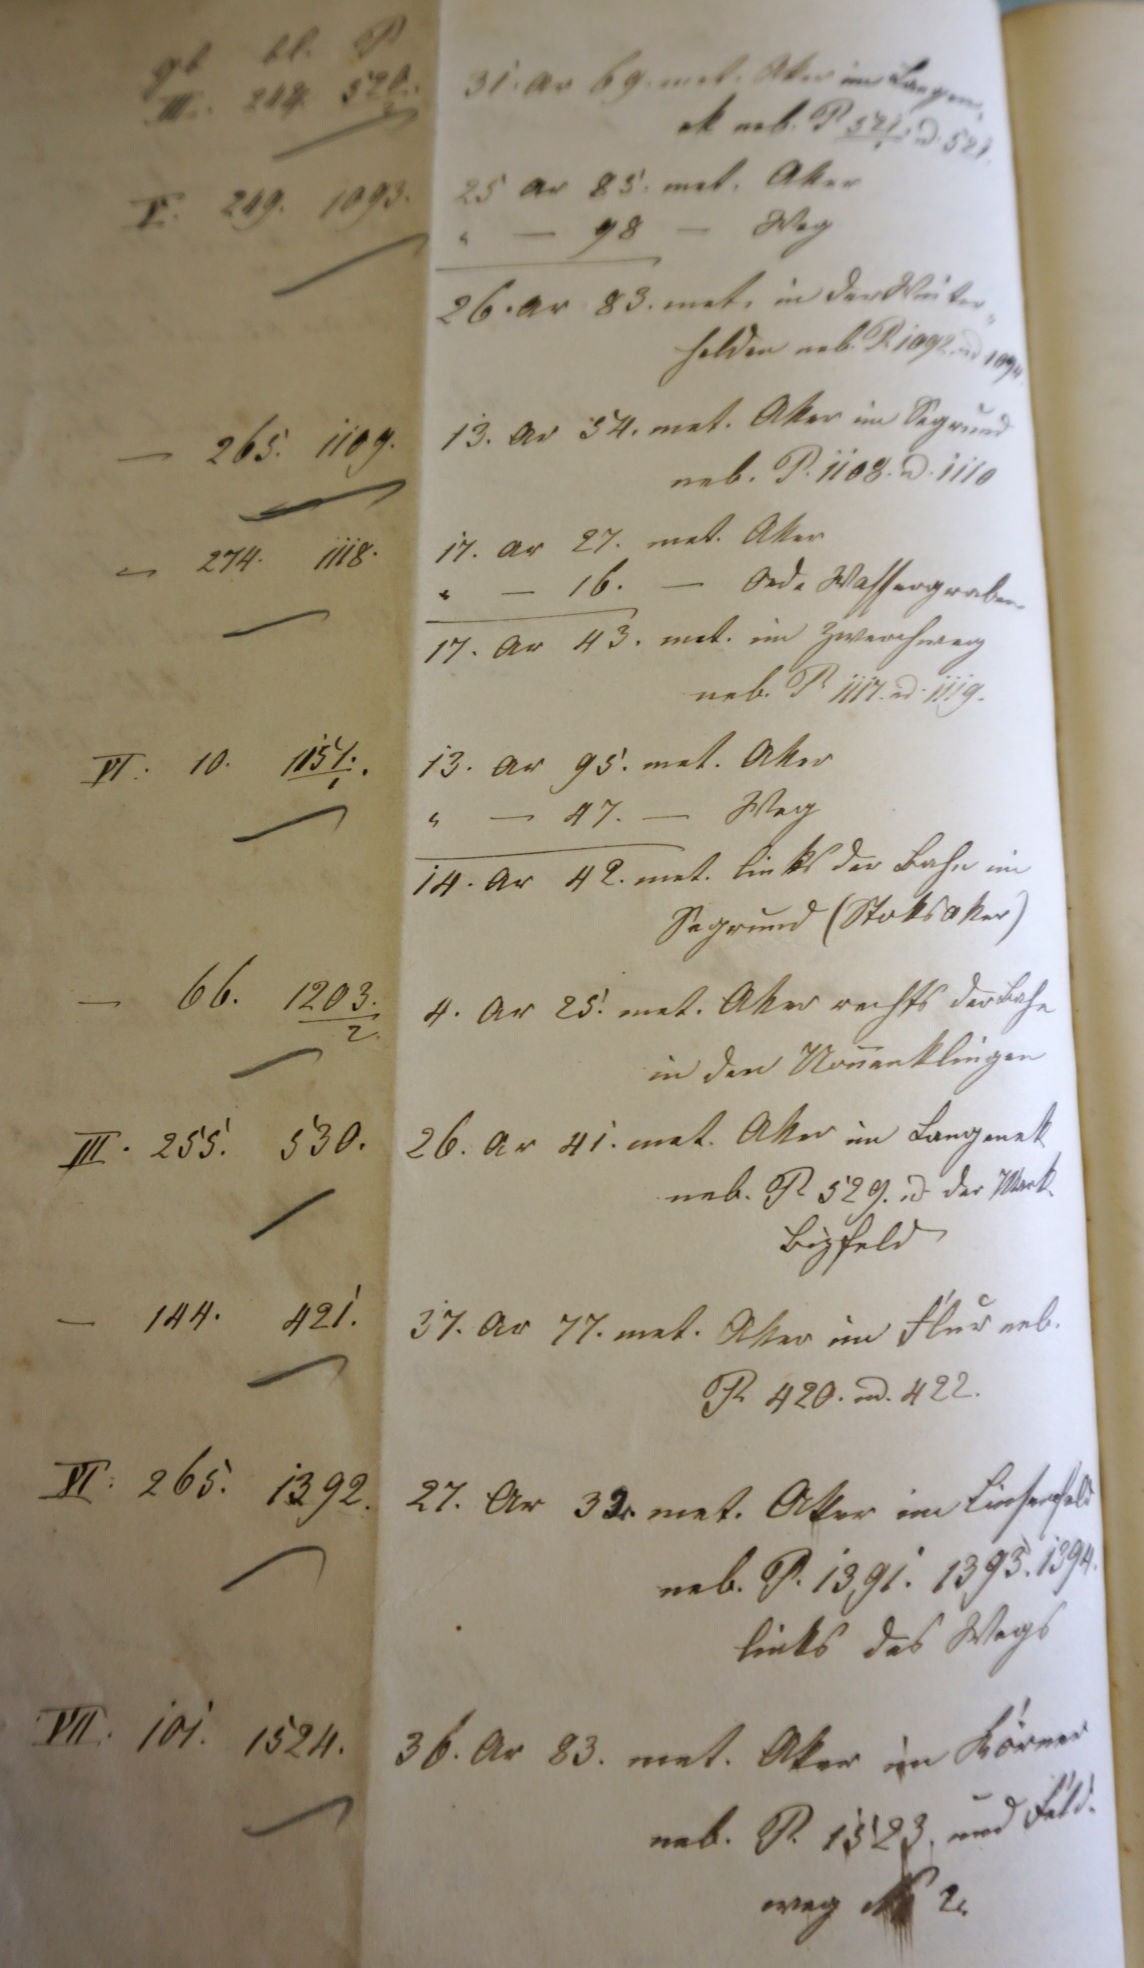 gb bl. P
III. 248. 520./2. 31. Ar 69. met. Aker im Langen-
ek neb. P 521./1. u. 521.
V. 249. 1093. 25 Ar 85. met. Aker
" — 98 — Weg
26. Ar 83. met. in der Winter-
halden neb. P. 1092 u. 1094.
— 265. 1109. 13. Ar 54. met. Aker im Segrund
neb. P. 1108. u. 1110
— 274. 1118. 17. Ar 27. met. Aker
" — 16. — Oede Wassergraben
17. Ar 43. met. im Zwerchweg
neb. P 1117. u. 1119.
VI. 10. 1151./1. 13. Ar 95. met. Aker
" — 47. — Weg
14. Ar 42. met. links der Bahn im
Segrund (Stoksaker)
— 66. 1203./2. 4. Ar 25. met. Aker rechts der Bahn
in den Nonnenklingen
III. 255. 530. 26. Ar 41. met. Aker im Langenek
neb. P. 529. u. der Mark.
Bizfeld
— 144. 421. 37. Ar 77. met. Aker im Flur neb.
P. 420. u. 422.
VI. 265. 1392. 27. Ar 32. met. Aker im Linsenfeld
neb. P. 1391. 1393. 1394.
links des Wegs
VII. 101. 1524. 36. Ar 83. met. Aker im Körner
neb. P. 1523. und Feld-
weg No 2.